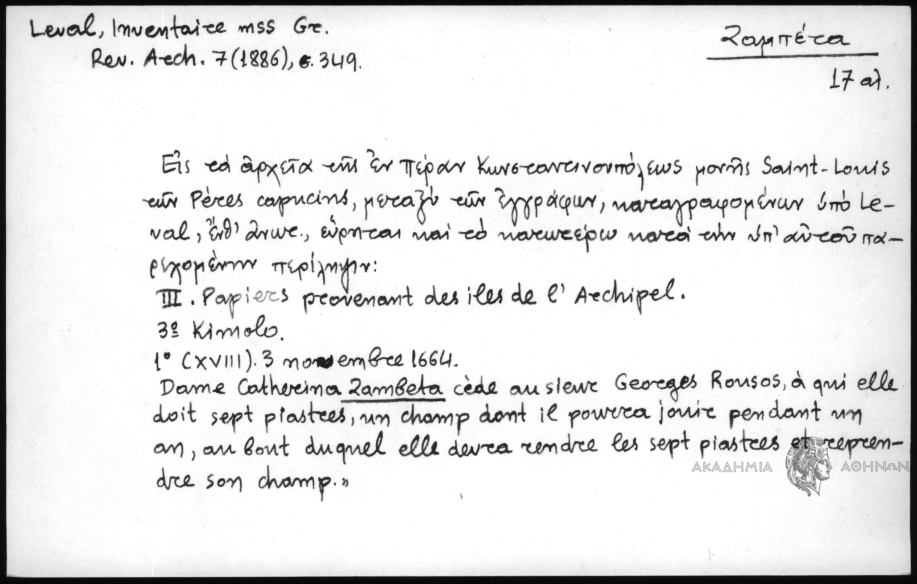 Leval, Inventaire mss Gr.
Rev. Arch. 7 (1886), σ. 349.
Ζαμπέτα
17 αἰ.
Εἰς τὰ ἀρχεῖα τῆς ἐν Πέραν Κωνσταντινουπόλεως μονῆς Saint-Louis
τῶν Pères capucins, μεταξὺ τῶν ἐγγράφων, καταγραφομένων ὑπὸ Le-
val, ἔνθ' ἀνωτ., εὕρηται καὶ τὸ κατωτέρω κατὰ τὴν ὑπ' αὐτοῦ πα-
ρεχομένην περίληψιν:
III. Papiers provenant des iles de l'Archipel.
3º Kimolo.
1º (XVIII). 3 novembre 1664.
Dame Catherina Zambeta cède au sieur Georges Rousos, à qui elle
doit sept piastres, un champ dont il pourra jouir pendant un
an, au bout duquel elle devra rendre les sept piastres et repren-
dre son champ.»
ΑΚΑΔΗΜΙΑ ΑΘΗΝΩΝ